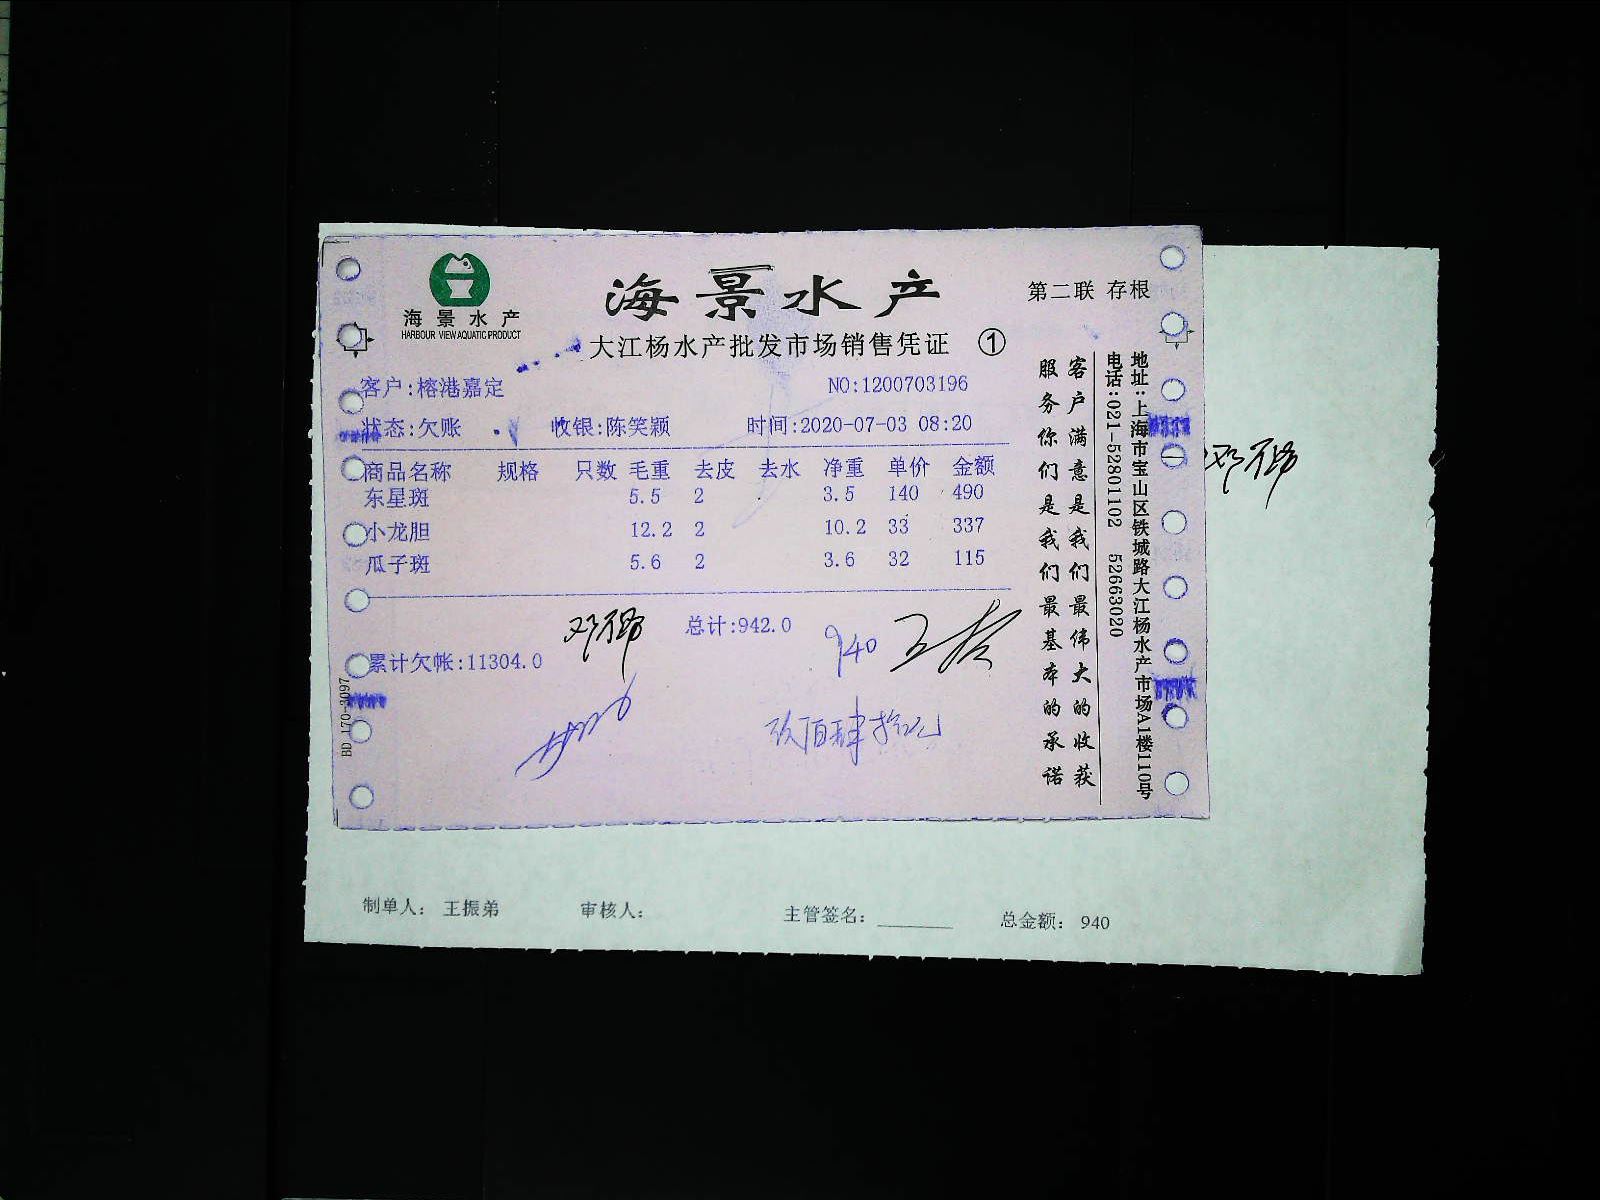 海景水产
HARBOUR VIEW AQUATIC PRODUCT
海景水产
第二联 存根
大江杨水产批发市场销售凭证 ①
客户:榕港嘉定 NO:1200703196
状态:欠账 收银:陈笑颖 时间:2020-07-03 08:20
商品名称 规格 只数 毛重 去皮 去水 净重 单价 金额
东星斑 5.5 2 3.5 140 490
小龙胆 12.2 2 10.2 33 337
瓜子斑 5.6 2 3.6 32 115
总计:942.0
940
累计欠帐:11304.0
玖佰肆拾元
BD 170-3097
客户满意是我们最伟大的收获
服务你们是我们最基本的承诺
地址:上海市宝山区铁城路大江杨水产市场A1楼110号
电话:021-52801102 52663020
制单人: 王振弟 审核人: 主管签名: 总金额: 940